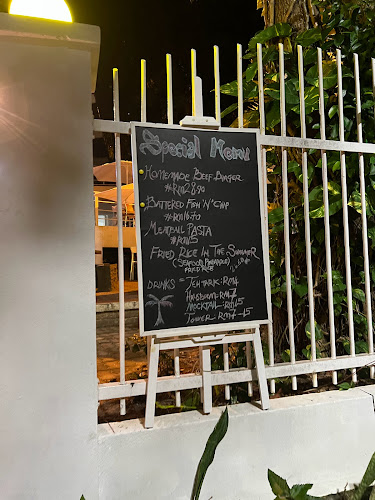 Special Menu
Homemade Beef Burger
RM28.90
Battered Fish 'N' Chip
Meatball Pasta
Fried Rice In The Summer
(Seafood, Pineapple)
Fried Rice
Drinks = Teh Tarik: RM4
RM7
Mocktail: RM15
Tower RM7-45